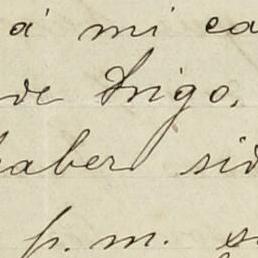 á mi ca
de Trigo.
haber sid
p. m. s